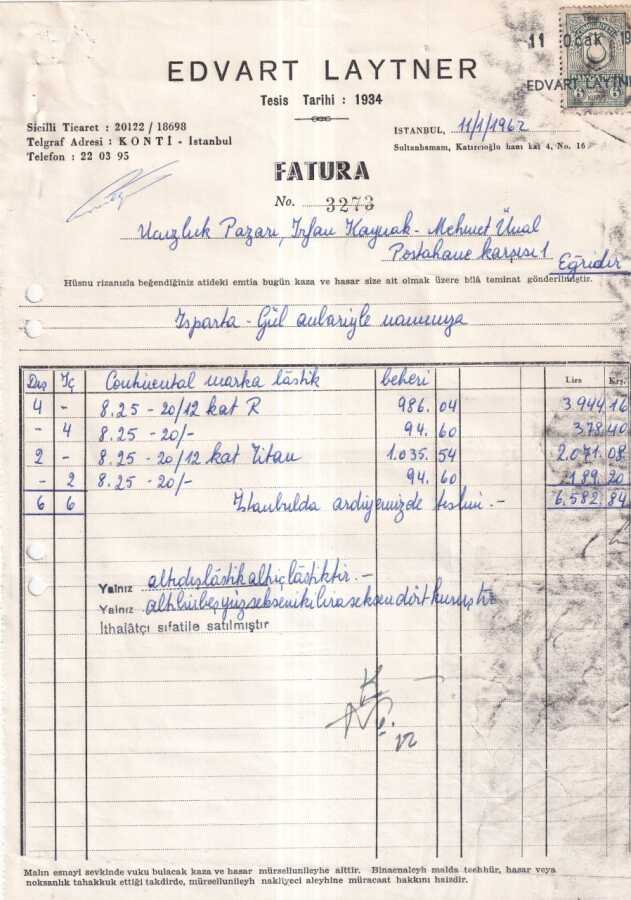 11 Ocak 19
EDVART LAYTNER
EDVART LAYTNER
Tesis Tarihi : 1934
Sicilli Ticaret : 20122 / 18698
Telgraf Adresi : KONTİ - İstanbul
Telefon : 22 03 95
İSTANBUL, 11/1/1962
Sultanhamam, Katırcıoğlu hanı kat 4, No. 16
FATURA
No. 3273
Ucuzluk Pazarı, İrfan Kaynak - Mehmet Ünal
Postahane karşısı 1 Eğridir
Hüsnu rizanızla beğendiğiniz atideki emtia bugün kaza ve hasar size ait olmak üzere bilâ teminat gönderilmiştir.
Isparta - Gül anbariyle namınıza
Dış İç Continental marka lâstik beheri Lira Krş.
4 - 8.25 - 20/12 kat R 986. 04 3.944 16
- 4 8.25 - 20/- 94. 60 378 40
2 - 8.25 - 20/12 kat Titan 1.035. 54 2.071 08
- 2 8.25 - 20/- 94. 60 189 20
6 6 İstanbulda ardiyemizde teslim. - 6.582 84
Yalnız altıdışlâstikaltıiçlâstiktir. -
Yalnız altıbinbeşyüzseksenikilirasseksendörtkuruştur
İthalâtçı sıfatile satılmıştır
Malın esnayi sevkinde vuku bulacak kaza ve hasar mürselünileyhe aittir. Binaenaleyh malda teehhür, hasar veya
noksanlık tahakkuk ettiği takdirde, mürselünileyh nakliyeci aleyhine müracaat hakkını haizdir.